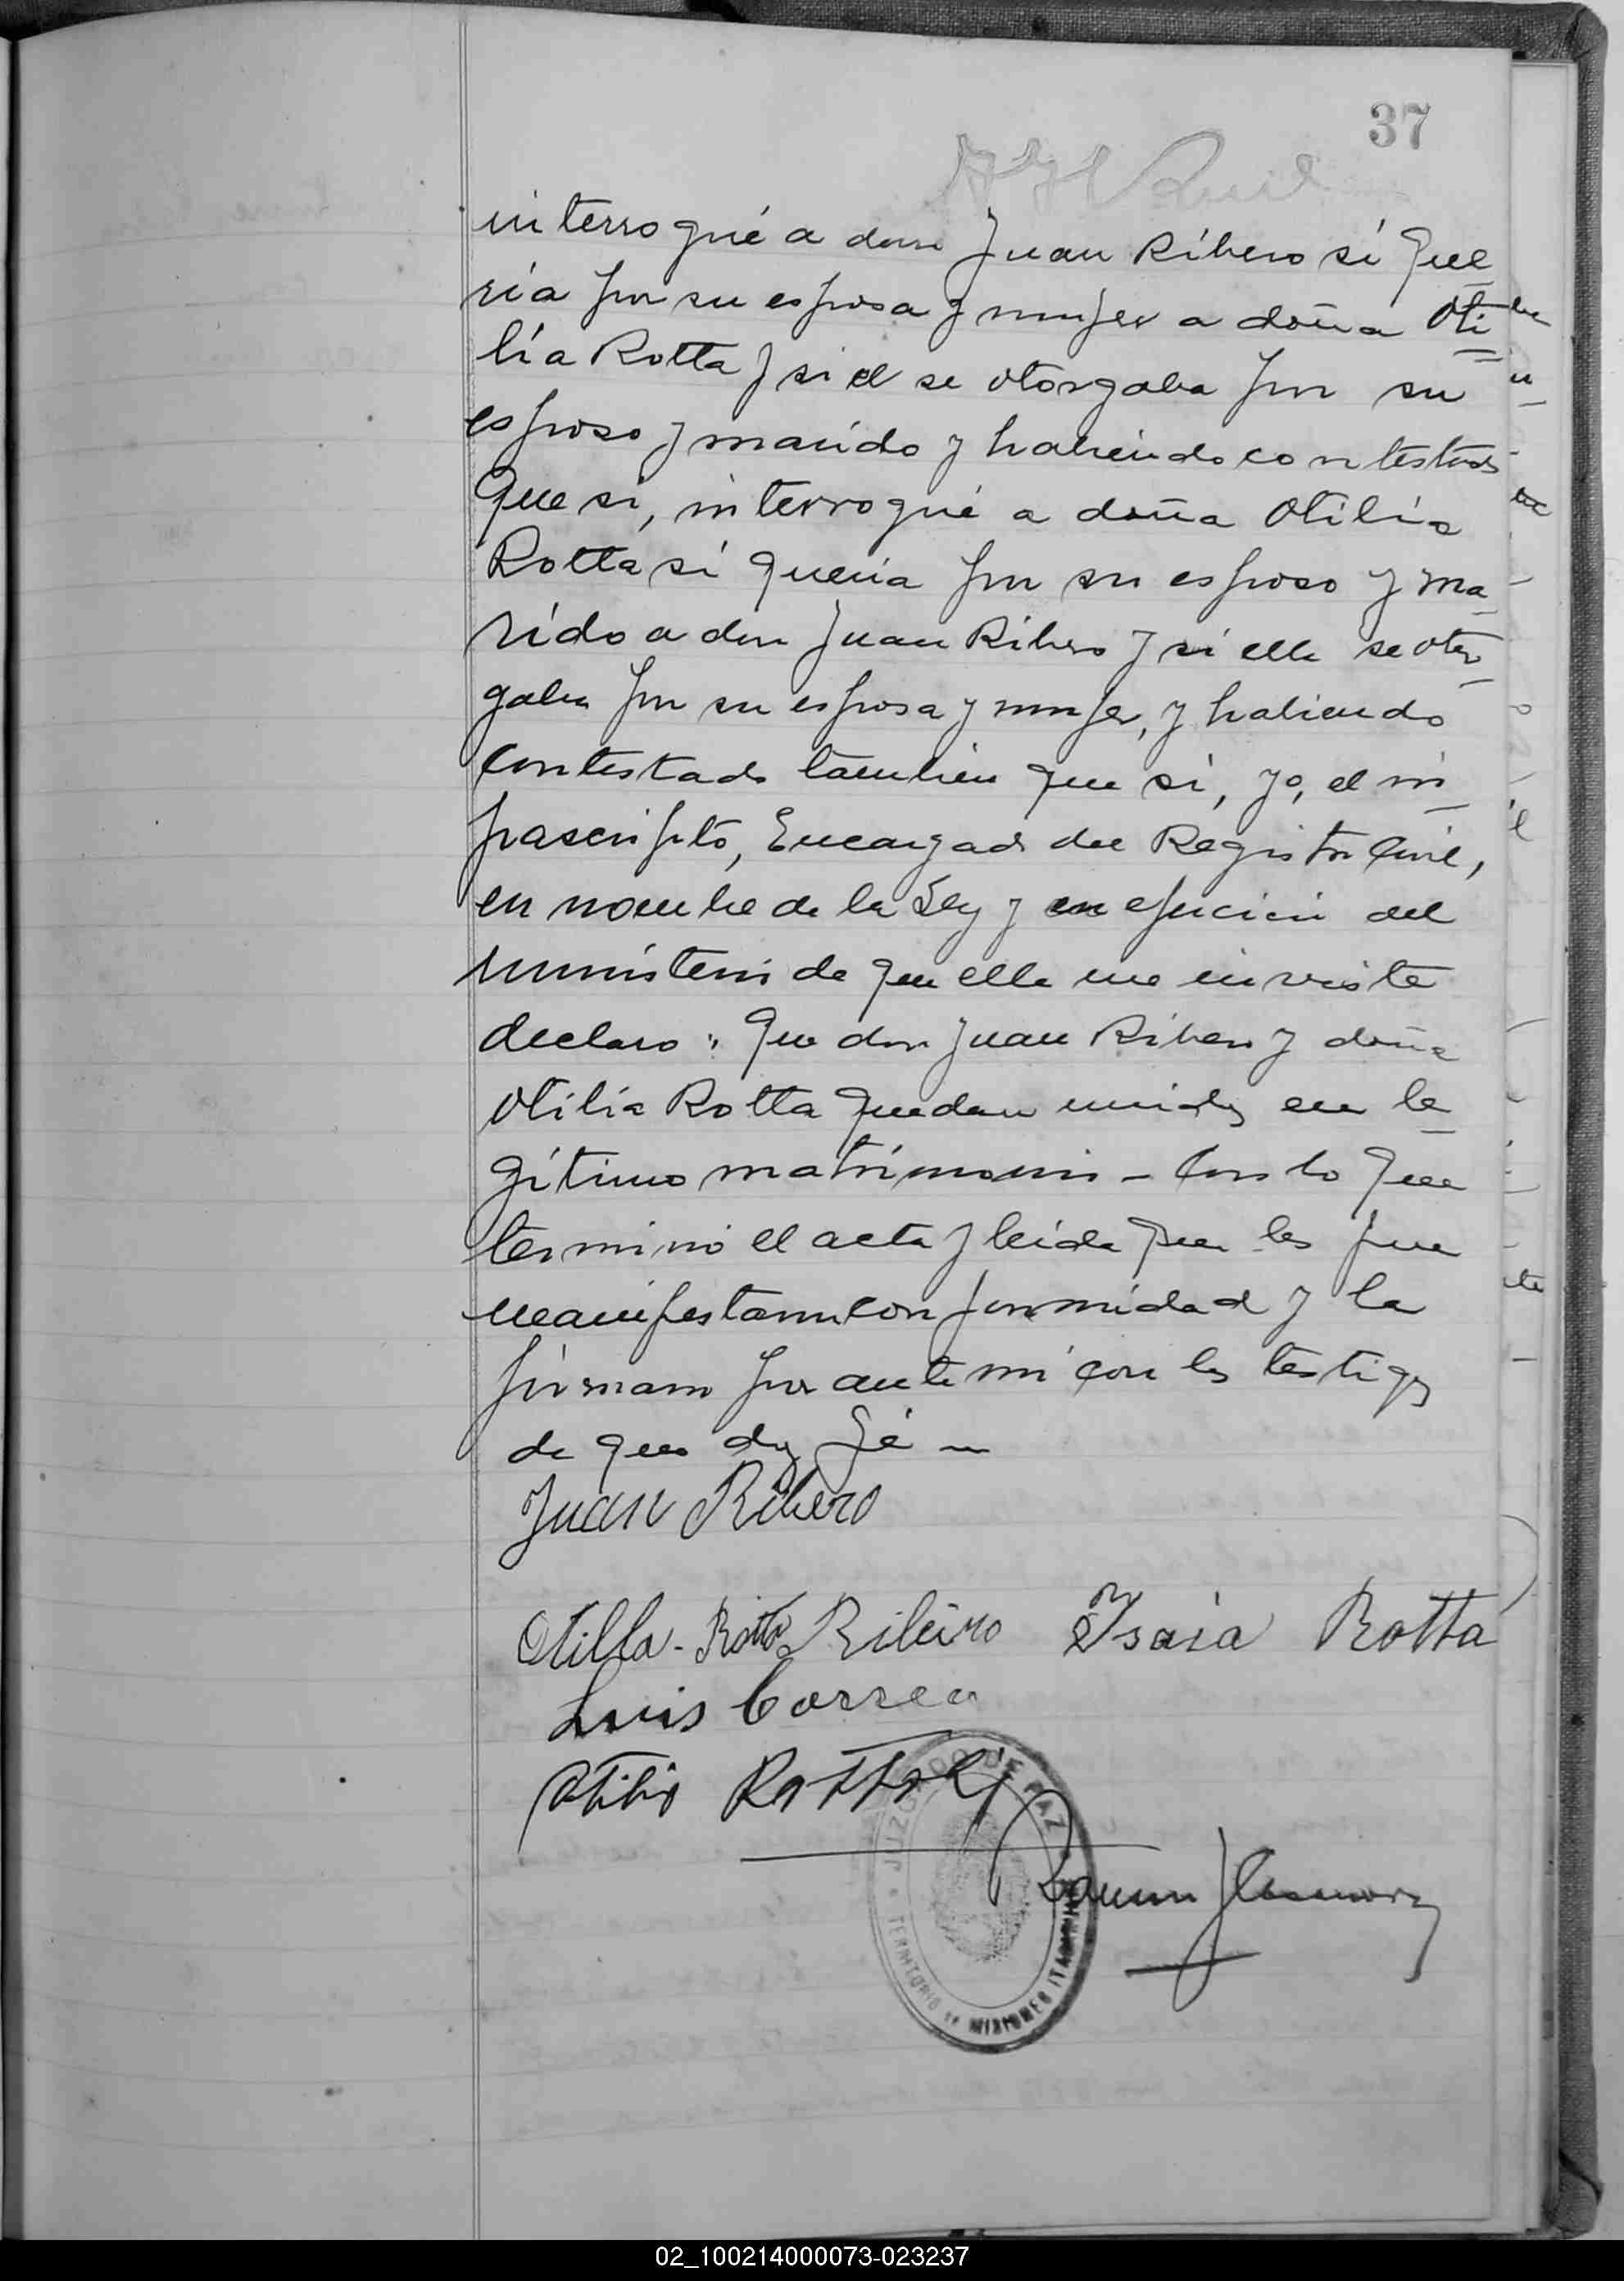 37
interrogué a don Juan Ribero si que
ria por su esposa y mujer a doña Oti
lia Rotta y si el se otorgaba por su
esposo y marido y habiendo contestado
que si, interrogué a doña Otilia
Rotta si queria por su esposo y ma
rido a don Juan Ribero y si ella se otor
gaba por su esposa y mujer, y habiendo
contestado tambien que si, yo, el in
frascripto, Encargado del Registro Civil,
en nombre de la Ley y en ejercicio del
ministerio de que ella me inviste
declaro: Que don Juan Ribero y doña
Otilia Rotta quedan unidos en le
gitimo matrimonio - Con lo que
terminó el acta y leida que les fue
manifestaron conformidad y la
firmaron por ante mi con los testigos
de que doy fé -
Juan Ribero
Otilla - Rotta Ribeiro Isaia Rotta
Luis Correa
Otilio Rottoli
JUZGADO DE PAZ
TERRITORIO DE MISIONES
02_100214000073-023237